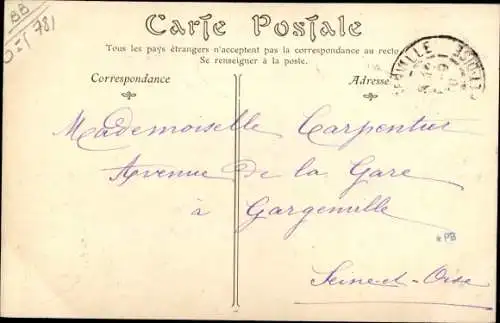 BB
O-T 781
Carte Postale
Tous les pays étrangers n'acceptent pas la correspondance au recto
Se renseigner à la poste.
Correspondance
Adresse
Mademoiselle Carpentier
Avenue De la Gare
à Gargenville
*PB
Seine-et-Oise